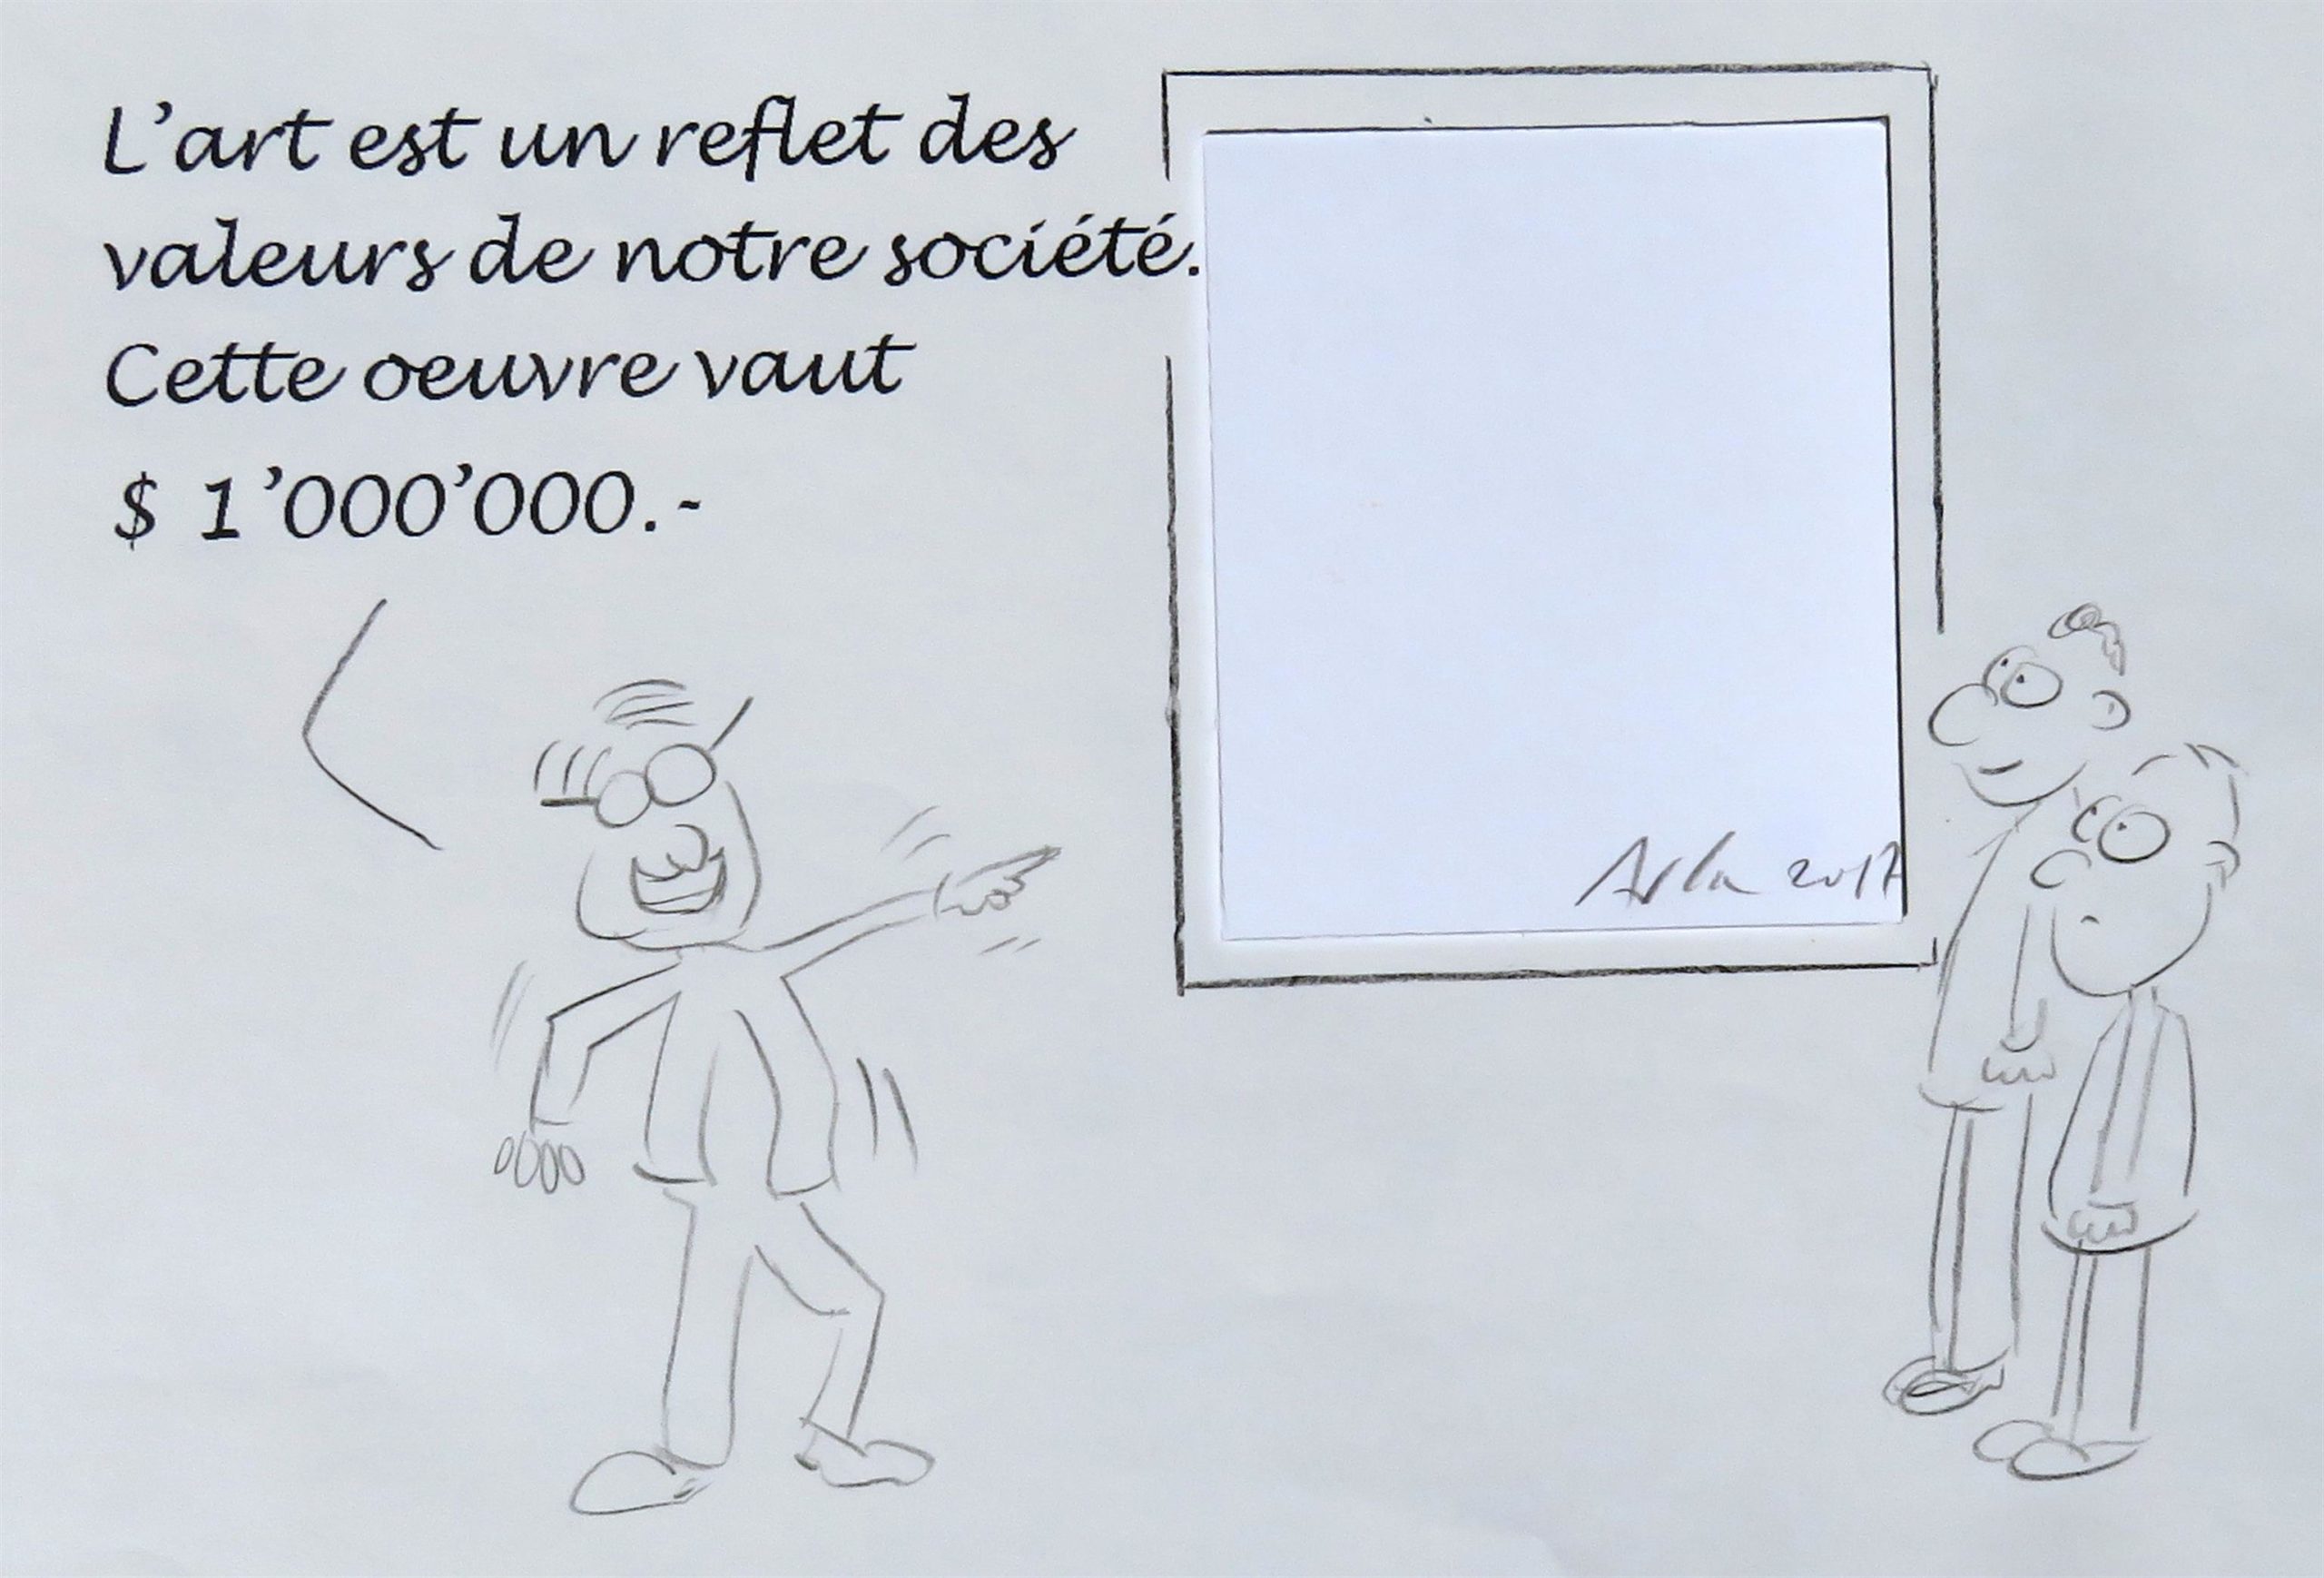 L'art est un reflet des
valeurs de notre société.
Cette oeuvre vaut
$ 1'000'000.-
2017